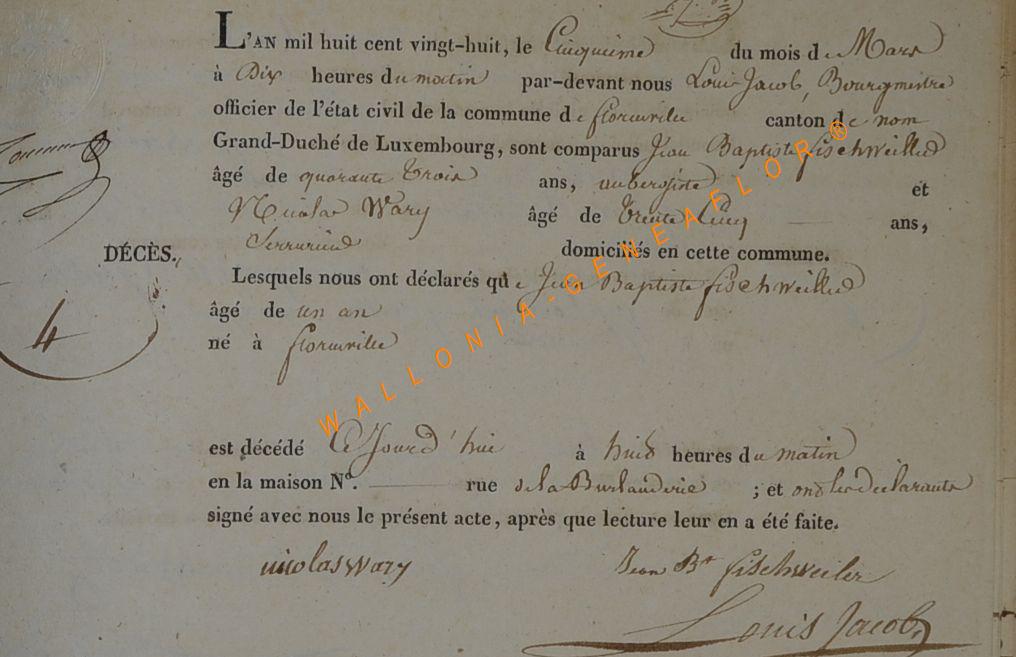 L'AN mil huit cent vingt-huit, le Cinquieme du mois de Mars
à Dix heures du matin par-devant nous Louis Jacob, Bourgmestre
officier de l'état civil de la commune de florenville canton de nom
Grand-Duché de Luxembourg, sont comparus Jean Baptiste fischweiller
âgé de quarante Trois ans, aubergiste et
Nicolas Wary âgé de Trente Cinq ans,
Serrurier domiciliés en cette commune.
DÉCÈS.
Lesquels nous ont déclarés que Jean Baptiste fischweiller
âgé de un an
4
né à florenville
est décédé Ce Jourd'hui à huit heures du matin
en la maison N°. rue de la ; et ont les declarants
signé avec nous le présent acte, après que lecture leur en a été faite.
nicolas Wary Jean Bte fischweiler
Louis Jacob
WALLONIA-GENEAFLOR®